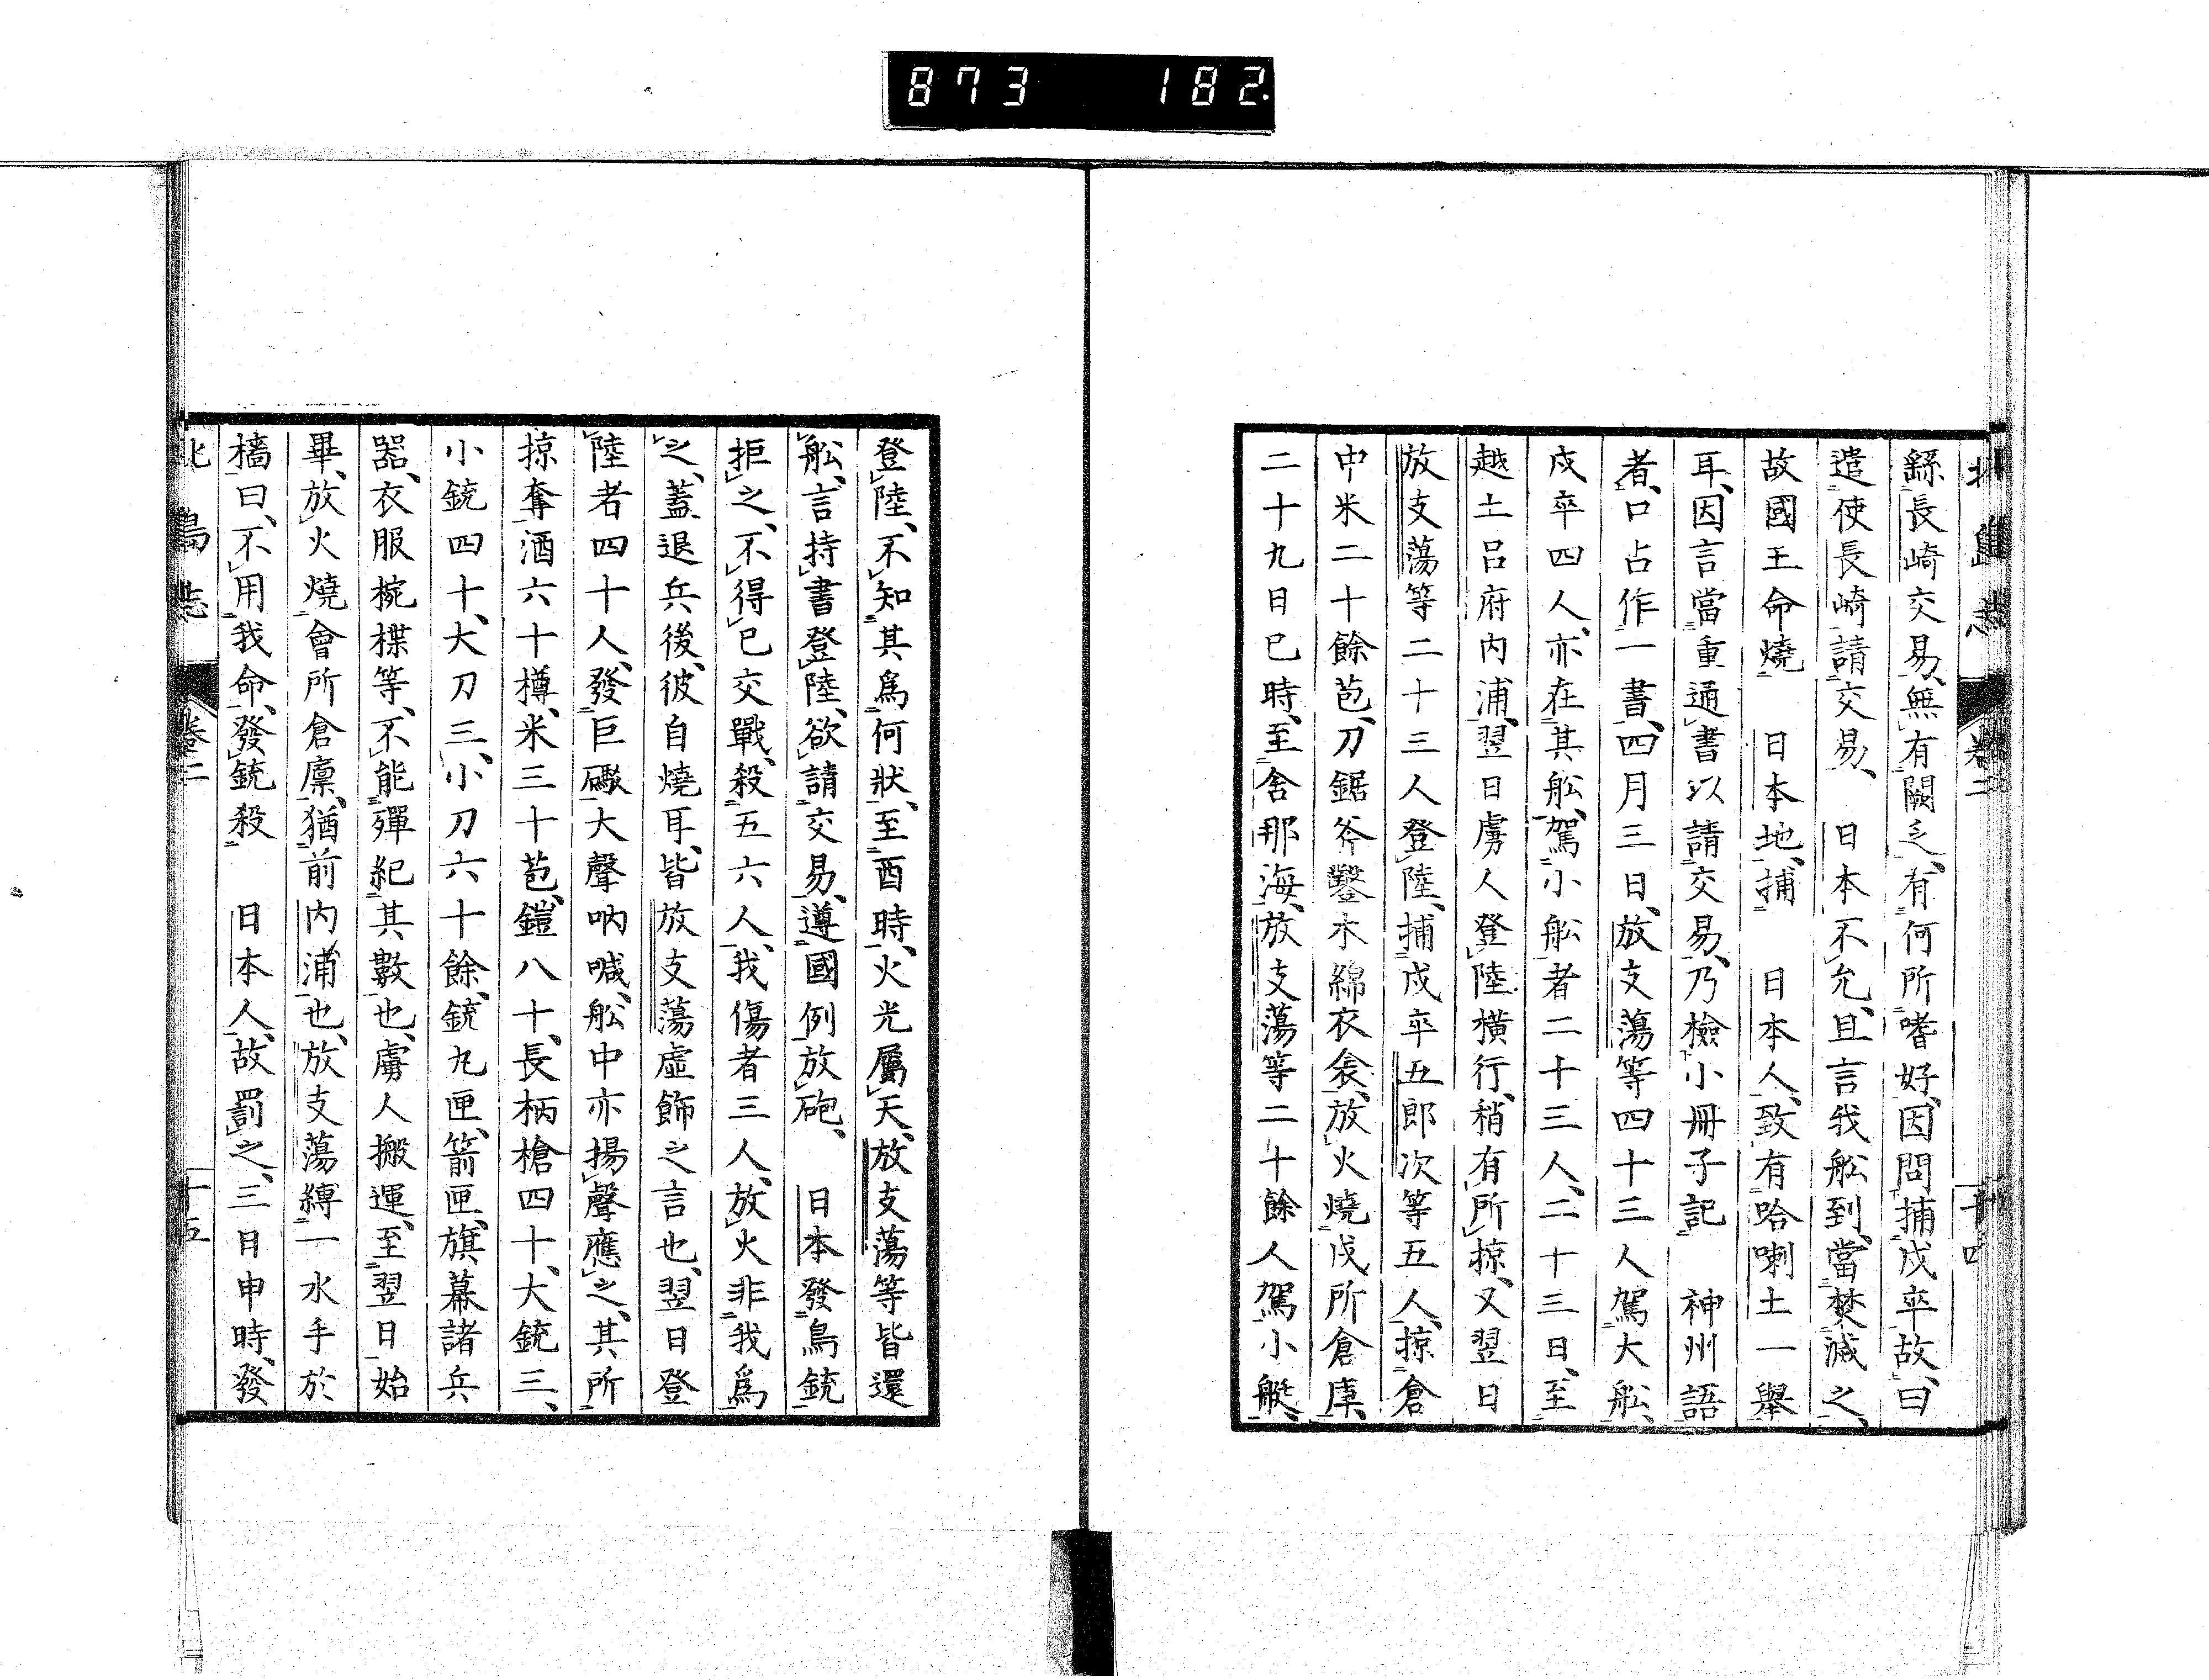 873 182
北島志 卷二 十四
繇長崎交易、無有闕乏、有何所嗜好、因問捕戍卒故、曰
遣使長崎請交易、 日本不允、且言我舩到、當焚滅之、
故國王命燒 日本地、捕 日本人、致有哈喇土一舉
耳、因言當重通書以請交易、乃檢小冊子記 神州語
者、口占作一書、四月三日、放支蕩等四十三人駕大舩、
戍卒四人、亦在其舩、駕小舩者二十三人、二十三日、至
越土呂府内浦、翌日虜人登陸橫行、稍有所掠、又翌日
放支蕩等二十三人登陸、捕戍卒五郎次等五人、掠倉
中米二十餘苞、刀鋸斧鑿木綿衣衾、放火燒戍所倉庫、
二十九日巳時、至舍那海、放支蕩等二十餘人駕小艇、
登陸、不知其爲何狀、至酉時、火光屬天、放支蕩等皆還
舩、言持書登陸、欲請交易、遵國例放砲、 日本發鳥銃
拒之、不得已交戰、殺五六人、我傷者三人、放火非我爲
之、蓋退兵後、彼自燒耳、皆放支蕩虛飾之言也、翌日登
陸者四十人、發巨礮大聲吶喊、舩中亦揚聲應之、其所
掠奪酒六十樽、米三十苞、鎧八十、長柄槍四十、大銃三、
小銃四十、大刀三、小刀六十餘、銃丸匣、箭匣、旗幕諸兵
器、衣服椀楪等、不能殫紀其數也、虜人搬運、至翌日始
畢、放火燒會所倉廩、猶前内浦也、放支蕩縛一水手於
檣曰、不用我命、發銃殺 日本人、故罰之、三日申時、發
北島志 卷二 十五